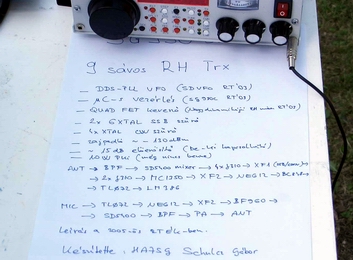 9 sávos RH Trx
— DDS-PLL VFO (SDVFO RT'03)
— µC-s vezérlés (S89RC RT'03)
— QUAD FET keverő RT'03)
— 2x 6XTAL SSB szűrő
— 4x XTAL CW szűrő
— sajzaj ~ -130dBm
— 15 dB előerősítő (be-ki kapcsolható)
— 10W PWR (még nincs benne)
ANT → BPF → SD5400 mixer → 4x J310 → XF1
→ 2x J310 → MC1350 → XF2 → NE612 →
→ TL072 → LM386
MIC → TL071 → NE612 → XF2 → BF960 →
→ SD5400 → BPF → PA → ANT
Leírás a 2005-ös RTÉK-ben.
Készítette: HA7SG Schula Gábor